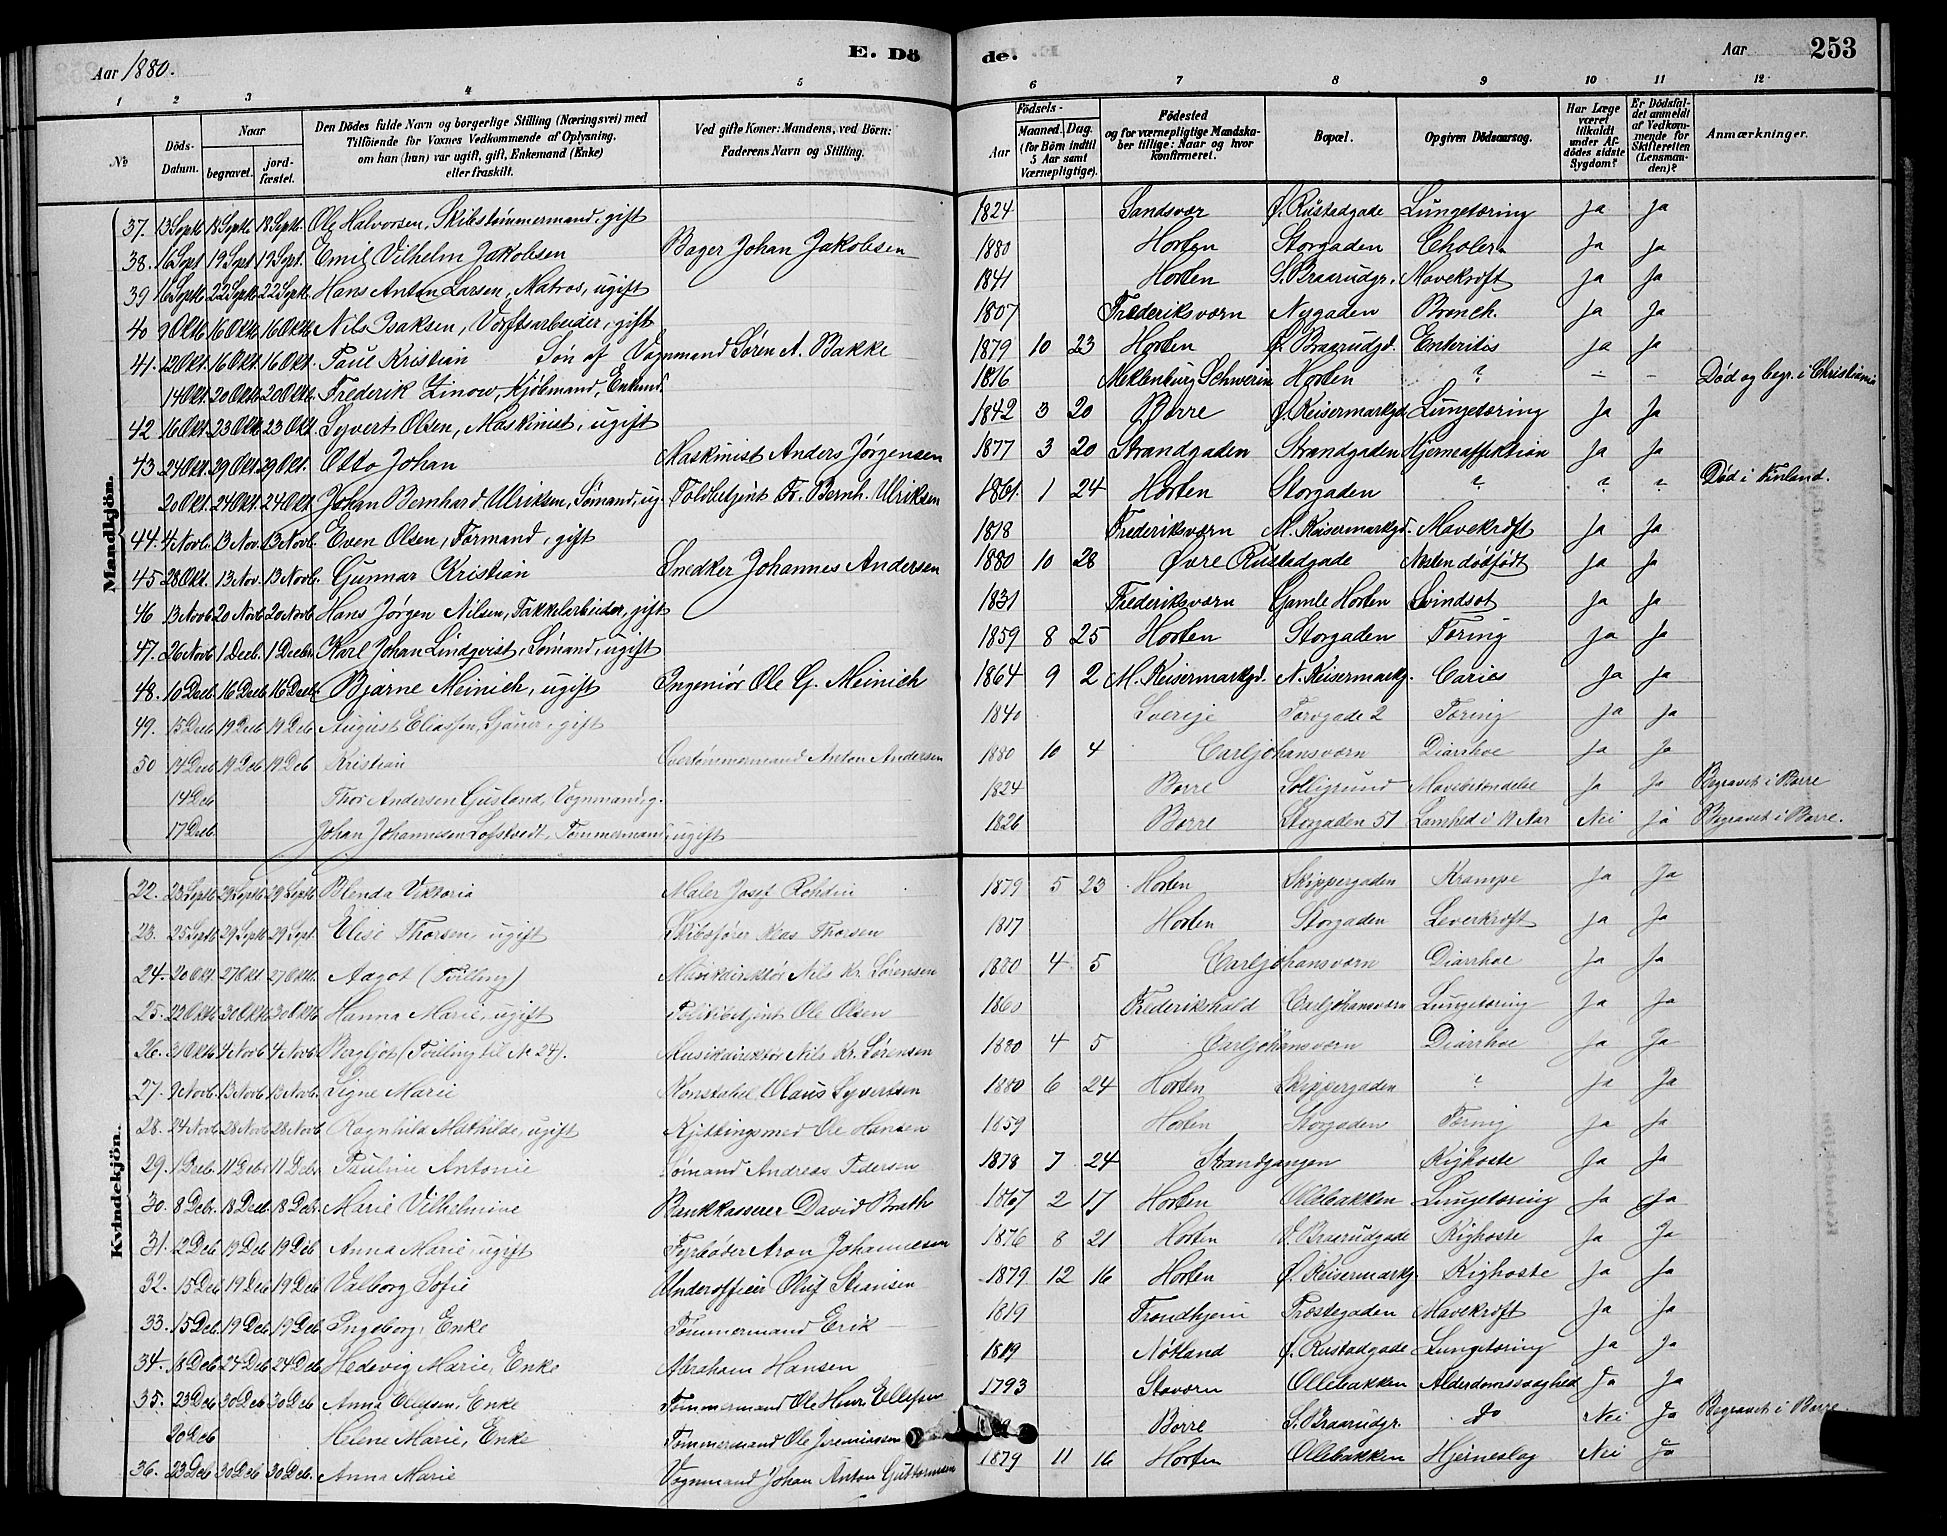 Aar 1880.
E. Dö
de.
Aar
253
1 2 3 4 5 6 7 8 9 10 11 12
No
Döds-Datum.
Naar
begravet.
jord-fæstet.
Den Dödes fulde Navn og borgerlige Stilling (Næringsvei) med
Tilföiende for Voxnes Vedkommende af Oplysning,
om han (hun) var ugift, gift, Enkemand (Enke)
eller fraskilt.
Ved gifte Koner: Mandens, ved Börn:
Faderens Navn og Stilling.
Födsels-
Aar
Maaned. Dag.
(for Börn indtil
5 Aar samt
Værnepligtige).
Födested
og for værnepligtige Mandska-
ber tillige: Naar og hvor
konfirmeret.
Bopæl.
Opgiven Dödsaarsag.
Har Læge
været
tilkaldt
under Af-
dödes sidste
Sygdom?
Er Dödsfal-
det anmeldt
af Vedkom-
mende for
Skifteretten
(Lensman-
den)?
Anmærkninger.
Mandkjön.
37. 13 Septb 18 Septb 18 Septb. Ole Halvorsen, Skibstömmermand, gift 1824 Sandsvær Ø. Rustadgade Lungetæring Ja Ja
38. 16 Sept 19 Sept 19 Sept. Emil Vilhelm Jakobsen Bager Johan Jakobsen 1880 Horten Storgaden Cholera Ja Ja
39 16 Septb 22 Septb 22 Septb. Hans Anton Larsen, Matros, ugift 1841 Horten S. Braarudgr. Mavekræft Ja Ja
40 9 Oktb 16 Oktb. 16 Oktb. Nils Isaksen, Værftsarbeider, gift 1807 Frederiksværn Nygaden Bronch. Ja Ja
41. 12 Okt. 16 Okt. 16 Okt. Paul Kristian Søn af Vognmand Søren A. Bakke 1879 10 23 Horten Ø. Braarudgd. Enteritis Ja Ja
14 Okt. 20 Oktb 20 Oktb. Frederik Zinow, Kjöbmand, Enkmd. 1816 Meklenburg Schwerin Horten ? — — Död og begr. i Christiania
42 16 Okt. 23 Okt. 23 Okt. Syvert Olsen, Maskinist, ugift 1842 3 20 Borre Ø. Keisermarkgd. Lungetæring Ja Ja
43 24 Okt. 29 Okt. 29 Okt. Otto Johan Maskinist Anders Jørgensen 1877 3 20 Strandgaden Strandgaden Hjerneaffektion Ja Ja
20 Okt. 24 Okt. 24 Okt. Johan Bernhard Ulriksen, Sømand, ug. Toldbetjent Fr. Bernh. Ulriksen 1861. 1 24 Horten Storgaden ? ? ? Död i Finland.
44. 4 Novb. 13 Nov. 13 Novb. Even Olsen, Formand, gift 1818 Frederiksværn M. Keisermarkgd. Mavekræft Ja Ja
45 28 Okt. 13 Nov. 13 Novb. Gunnar Kristian Snedker Johannes Andersen 1880 10 28 Øvre Rustadgade Næsten dödfödt Ja Ja
46 13 Novb 20 Novb 20 Novb. Hans Jørgen Nilsen, Takkelarbeider, gift 1831 Frederiksværn Gamle Horten Svindsot Ja Ja
47. 26 Novb 1 Decb. 1 Decbr. Karl Johan Lindqvist, Sømand, ugift 1859 8 25 Horten Storgaden Tæring Ja Ja
48. 10 Decb. 16 Decb. 16 Decb. Bjarne Meinich, ugift Ingeniør Ole G. Meinich 1864 9 2 M. Keisermarkgd. N. Keisermarkg. Caries Ja Ja
49. 15 Decb 19 Decb 19 Decb August Eliassen, Sjauer, gift 1840 Sverige Torvgade 2 Tæring Ja Ja
50 14 Decb 19 Deb 19 Deb Kristian Overtømmermand Anton Andersen 1880 10 4 Carljohansværn Diarrhoe Ja Ja
14 Deb Thor Andersen Gusland, Vognmand, g. 1824 Borre Solligrund Mavebetændelse Ja Ja Begravet i Borre
17 Decb Johan Johannesen Lofstvedt, Tømmermand, ugift 1826 Borre Storgaden 51 Lamhed i 19 Aar Nei Ja Begravet i Borre.
Kvindekjön.
22. 23 Septb 29 Septb 29 Septb Blenda Viktoria Maler Josef Rohdin 1879 5 23 Horten Skippergaden Krampe Ja Ja
23. 25 Septb 29 Septb 29 Sept. Elise Thorsen, ugift Skibsfører Klas Thorsen 1817 Horten Storgaden Leverkræft Ja Ja
24. 20 Okt. 27 Okt 27 Oktb. Aagot (Tvilling) Musikdirektør Nils Kr. Sørensen 1880 4 5 Carljohansværn Diarrhoe Ja Ja
25. 22 Oktb 30 Oktb 30 Oktb Hanna Marie, ugift Politibetjent Ole Olsen 1860 Frederikshald Carljohansværn Lungetæring Ja Ja
26. 31 Oktb 4 Novb 4 Novb Bergljot (Tvilling til No 24). Musikdirektør Nils Kr. Sørensen 1880 4 5 Carljohansværn Diarrhoe Ja Ja
27. 9 Novb. 13 Novb 13 Novb. Signe Marie Konstabel Olaus Syvertsen 1880 6 24 Horten Skippergaden ? Ja Ja
28. 24 Novb 28 Novb 28 Novb Ragnhild Mathilde, ugift Kjettingsmed Ole Hansen 1859 Horten Storgaden Tæring Ja Ja
29. 1 Decb. 11 Debr 11 Debr. Pauline Antonie Sømand Andreas Pedersen 1878 7 24 Strandgangen Kighoste Ja Ja
30. 8 Deb. 18 Decb 18 Deb. Marie Vilhelmine Bankkasserer David Bruth 1867 2 17 Horten Ollebakken Lungetæring Ja Ja
31. 12 Deb 19 Deb 19 Deb Anna Marie, ugift Fyrbøder Aron Johannesen 1876 8 21 Horten V. Braarudgade Kighoste Ja Ja
32. 15 Deb 19 Deb 19 Deb Valborg Sofie Underofficer Oluf Stiansen 1879 12 16 Horten Ø. Keisermarkg. Kighoste Ja Ja
33. 15 Deb. 19 Deb 19 Deb Ingeborg, Enke Tømmermand Erik 1819 Trondhjem Præstegaden Mavekræft Ja Ja
34. 18 Deb 24 Deb 24 Deb Hedevig Marie, Enke Abraham Hansen 1819 Nötland Ø. Rustadgade Lungetæring Ja Ja
35. 23 Deb 30 Deb 30 Deb Anna Olefsen, Enke Tømmermand Ole Henr. Ellefsen 1793 Stavern Ollebakken Alderdomssvaghed Ja Ja
20 Deb Helene Marie, Enke Tømmermand Ole Jeremiassen Borre S. Braarudgr. Do Nei Ja Begravet i Borre.
36. 23 Deb 30 Deb 30 Deb. Anna Marie Vognmand Johan Anton Guttormsen 1879 11 16 Horten Ollebakken Hjerneslag Nei Ja